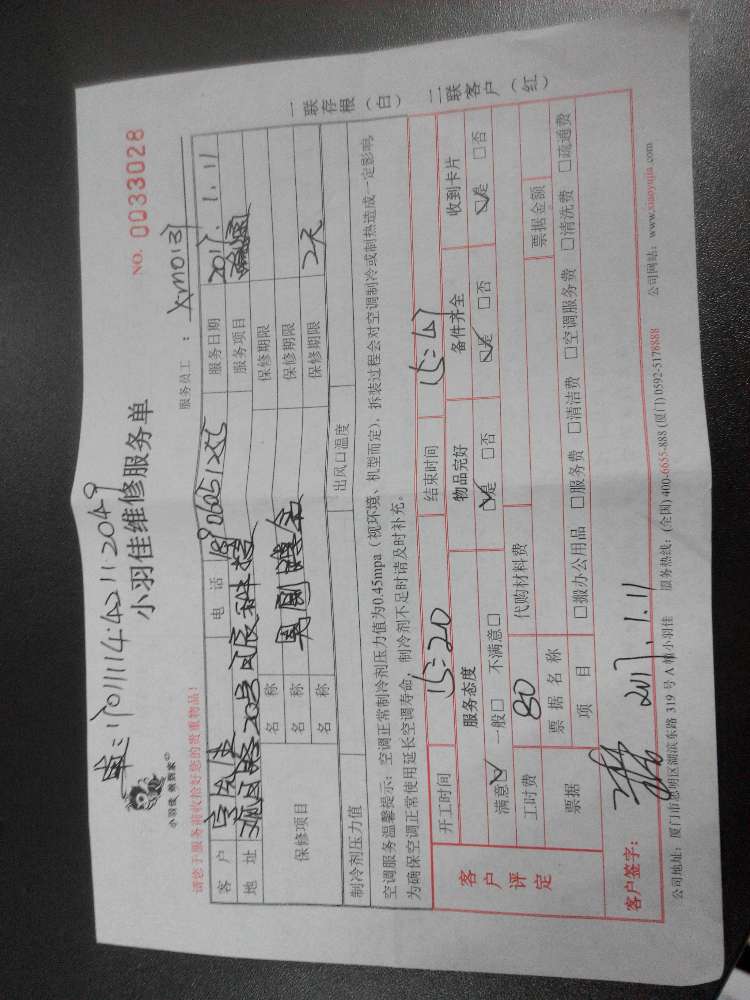 单:17011114:42 11:2049
小羽佳 燕到家
小羽佳维修服务单
NO. 0033028
请您于服务前收拾好您的贵重物品!
服务员工: XM013
客户 电话 18906051255 服务日期 2017.1.11
地址 服务项目
保修项目 名称 保修期限
名称 保修期限
名称 保修期限 2天
制冷剂压力值 出风口温度
空调服务温馨提示:空调正常制冷剂压力值为0.45mpa(视环境、机型而定),拆装过程会对空调制冷或制热造成一定影响,
为确保空调正常使用延长空调寿命,制冷剂不足时请及时补充。
一联存根(白) 二联客户(红)
客户评定
开工时间 15:20 结束时间 15:47
服务态度 物品完好 备件齐全 收到卡片
满意☑ 一般□ 不满意□ ☑是 □否 ☑是 □否 ☑是 □否
工时费 80 代购材料费
票据 票据名称 票据金额
项目 □搬办公用品 □服务费 □清洁费 □空调服务费 □清洗费 □疏通费
客户签字: 2017.1.11
公司地址:厦门市思明区湖滨东路 319 号 A 幢小羽佳 服务热线:(全国) 400-6655-888 (厦门) 0592-5178888 公司网站:www.xiaoyujia.com